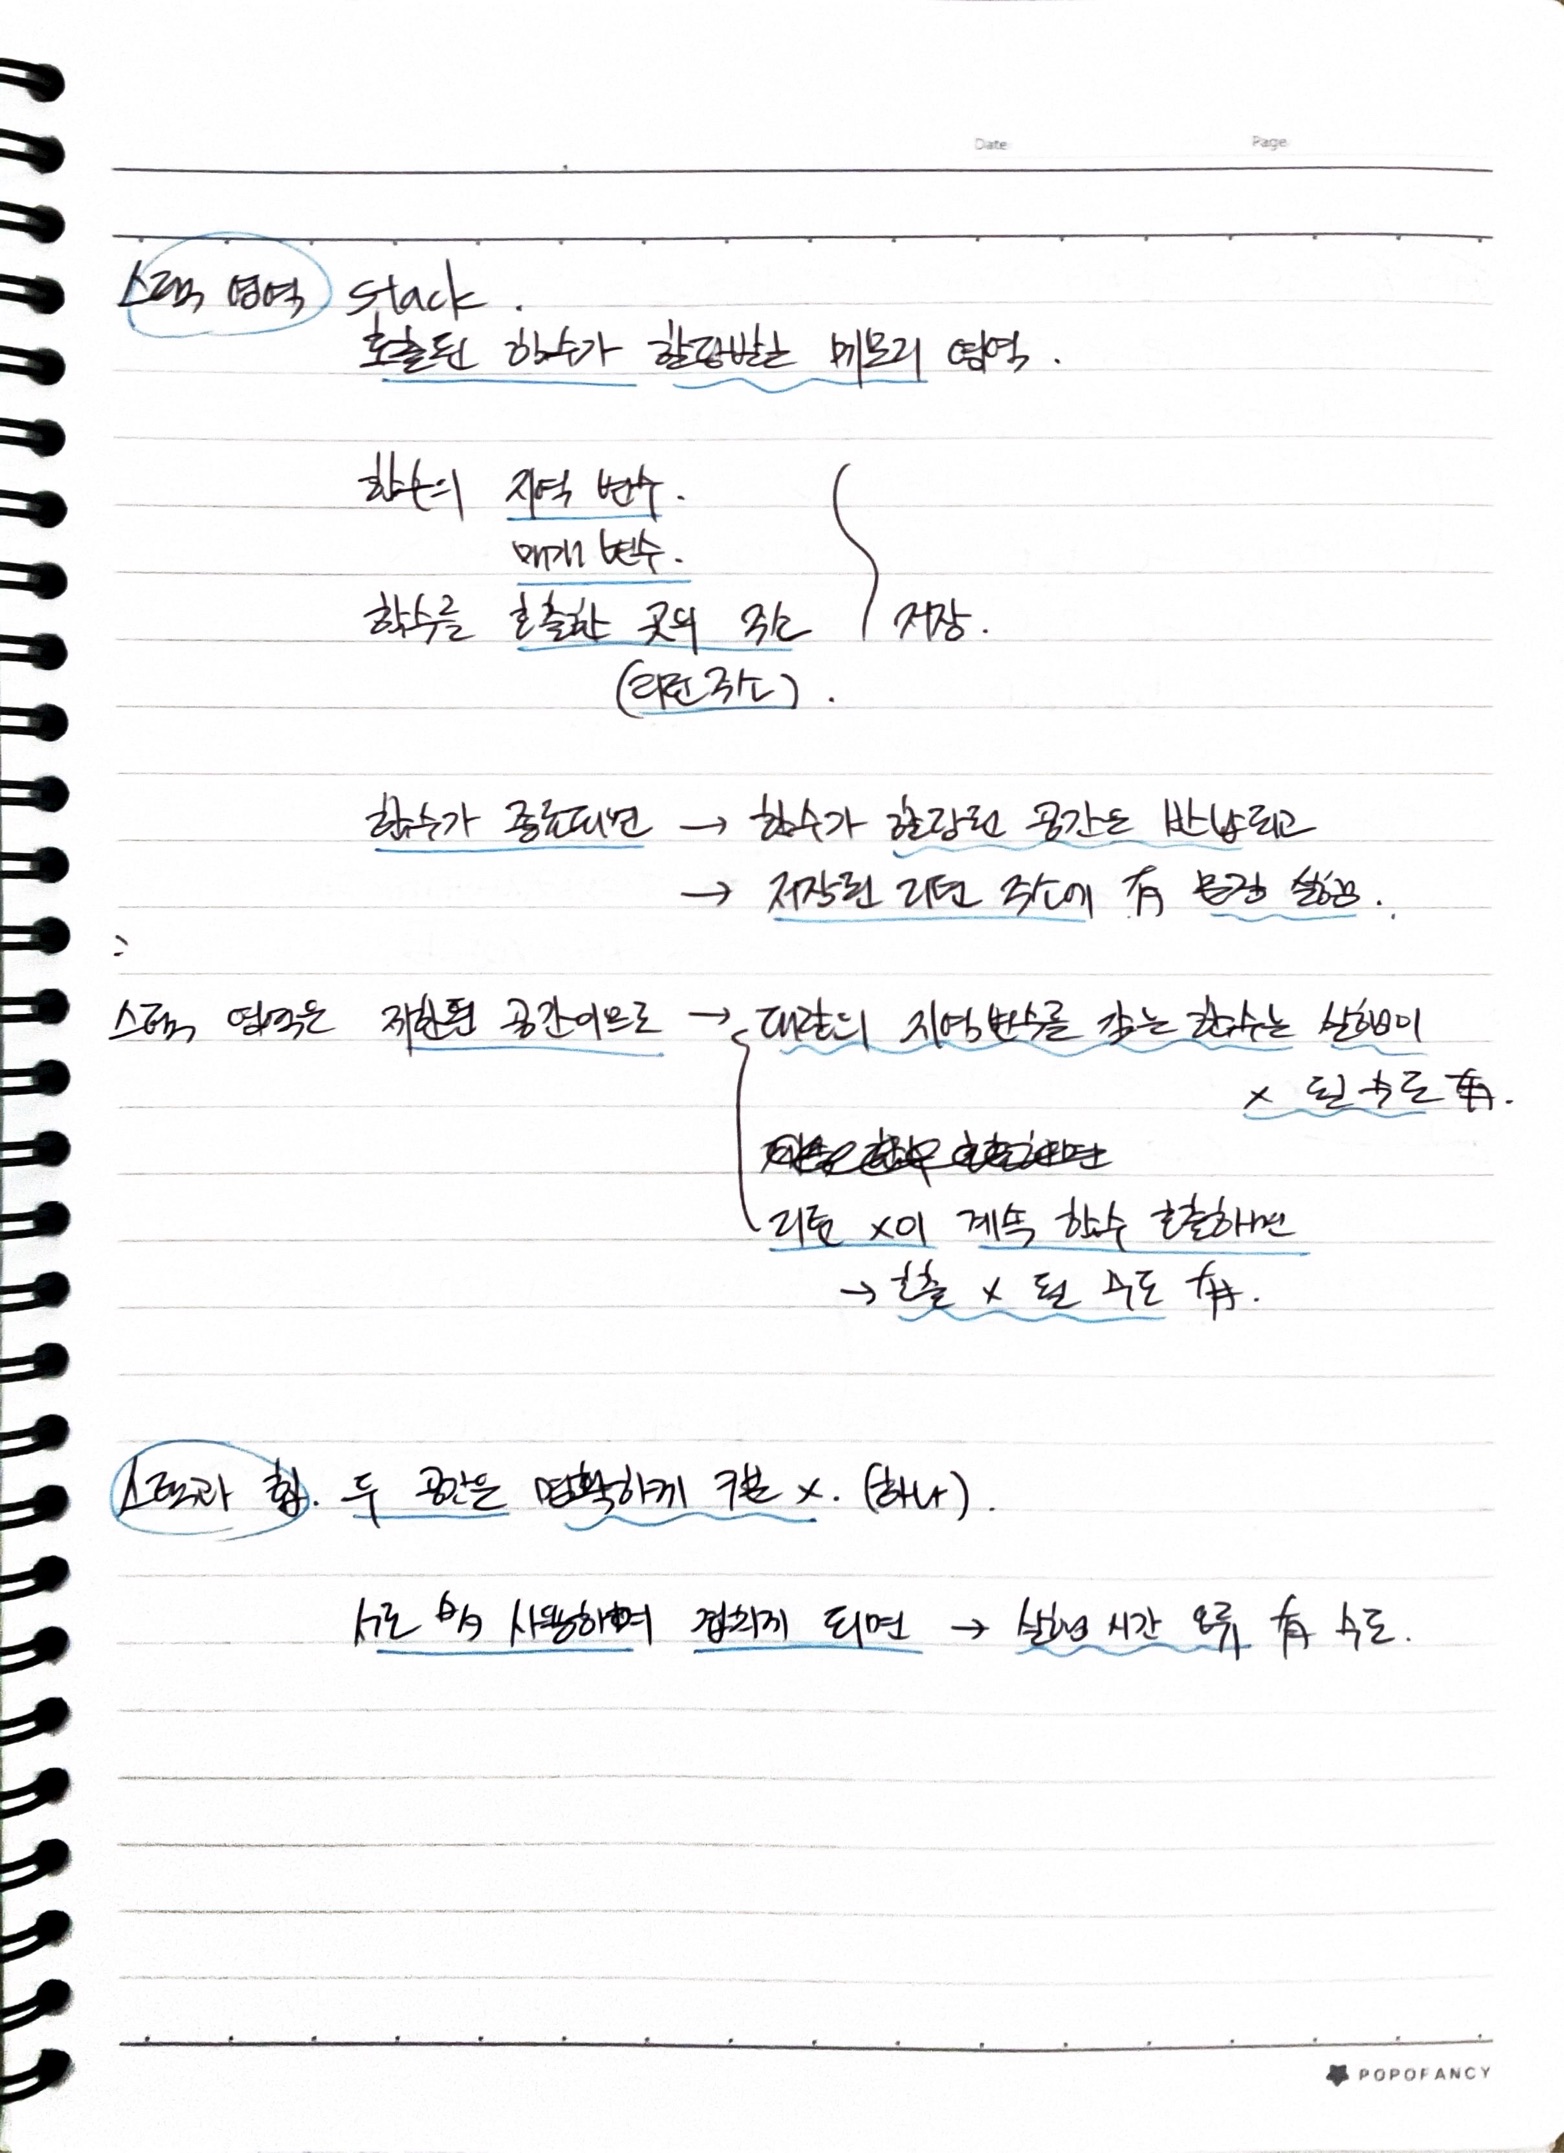 Date Page
스택 영역 Stack.
호출된 함수가 할당받는 메모리 영역.
함수의 지역 변수.
매개 변수.
함수를 호출한 곳의 주소 저장.
(리턴 주소).
함수가 종료되면 → 함수가 할당된 공간은 반납되고
→ 저장된 리턴 주소에 有 문장 실행.
스택 영역은 제한된 공간이므로 → 대량의 지역변수를 갖는 함수는 실행이
× 될 수도 有.
리턴 ×이 계속 함수 호출하면
→ 호출 × 될 수도 有.
스택과 힙. 두 공간은 명확하게 구분 ×. (하나).
서로 사용하며 겹치게 되면 → 실행 시간 오류 有 수도.
POPOFANCY